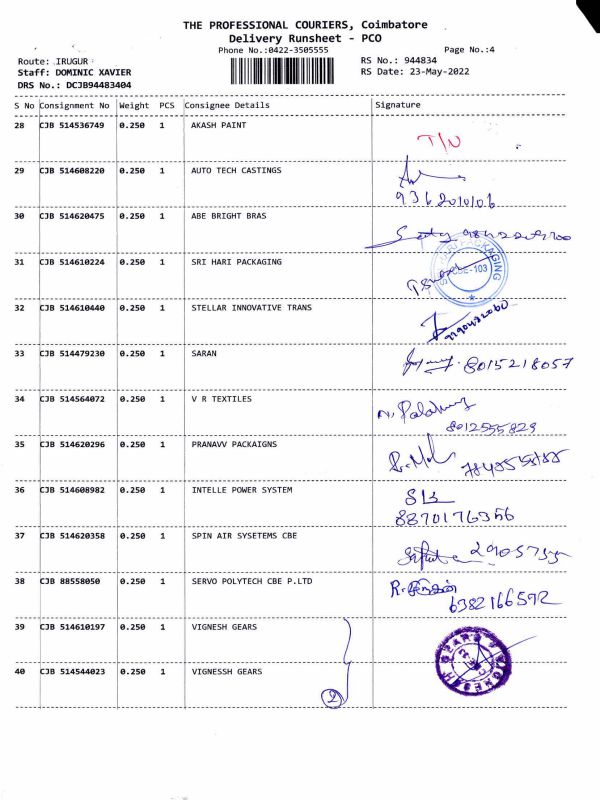 THE PROFESSIONAL COURIERS, Coimbatore
Delivery Runsheet - PCO
Phone No.:0422-3505555 Page No.:4
Route: IRUGUR RS No.: 944834
Staff: DOMINIC XAVIER RS Date: 23-May-2022
DRS No.: DCJB94483404
S No Consignment No Weight PCS Consignee Details Signature
28 CJB 514536749 0.250 1 AKASH PAINT
T/N
29 CJB 514608220 0.250 1 AUTO TECH CASTINGS
9362010106
30 CJB 514620475 0.250 1 ABE BRIGHT BRAS
31 CJB 514610224 0.250 1 SRI HARI PACKAGING
32 CJB 514610440 0.250 1 STELLAR INNOVATIVE TRANS
33 CJB 514479230 0.250 1 SARAN
8015218057
34 CJB 514564072 0.250 1 V R TEXTILES
8012555829
35 CJB 514620296 0.250 1 PRANAVV PACKAIGNS
36 CJB 514608982 0.250 1 INTELLE POWER SYSTEM
8870176356
37 CJB 514620358 0.250 1 SPIN AIR SYSETEMS CBE
38 CJB 88558050 0.250 1 SERVO POLYTECH CBE P.LTD
6382166592
39 CJB 514610197 0.250 1 VIGNESH GEARS
40 CJB 514544023 0.250 1 VIGNESSH GEARS
2
VIGNESH GEARS